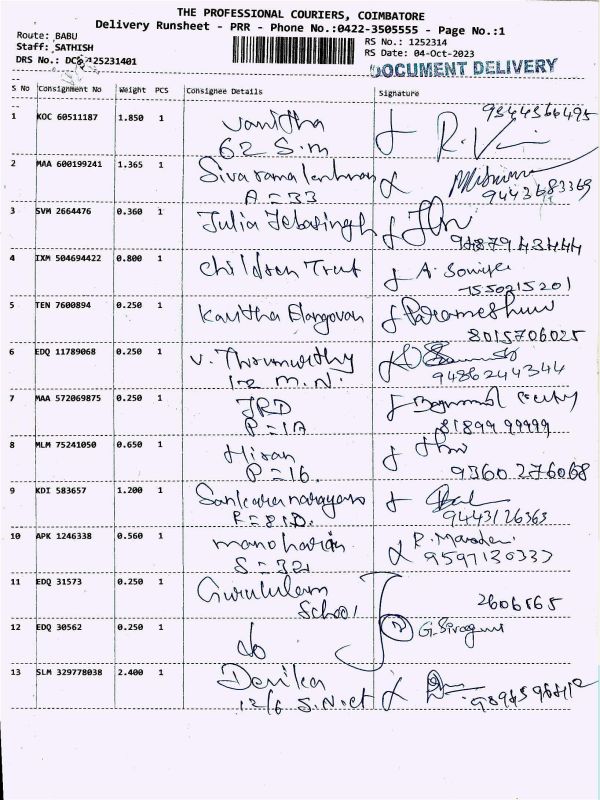 THE PROFESSIONAL COURIERS, COIMBATORE
Delivery Runsheet - PRR - Phone No.:0422-3505555 - Page No.:1
Route: BABU
Staff: SATHISH
RS No.: 1252314
RS Date: 04-Oct-2023
DRS No.:
DOCUMENT DELIVERY
S No Consignment No Weight PCS Consignee Details Signature
1 KOC 60511187 1.850 1 Vanitha 9344366495
62 S.M
2 MAA 600199241 1.365 1 Sivaramalakshman
A = 33 9443683369
3 SVM 2664476 0.360 1 Julia Jebasingh
4 IXM 504694422 0.800 1 Children Trust A.
7550215201
5 TEN 7600894 0.250 1 Kavitha Elangovan Parameshwari
8015706025
6 EDQ 11789068 0.250 1 V. Thirumurthy
M.N. 9486244344
7 MAA 572069875 0.250 1 JRD
P = 1A 81899 99999
8 MLM 75241050 0.650 1 Hiran
P = 16. 9360276068
9 KDI 583657 1.200 1 Sankaranarayanan
9443126363
10 APK 1246338 0.560 1 Manoharan R.
S = 32 9597130333
11 EDQ 31573 0.250 1 Gurukulam
School
12 EDQ 30562 0.250 1 do G.
13 SLM 329778038 2.400 1 Devika
12/6 S.N.ct